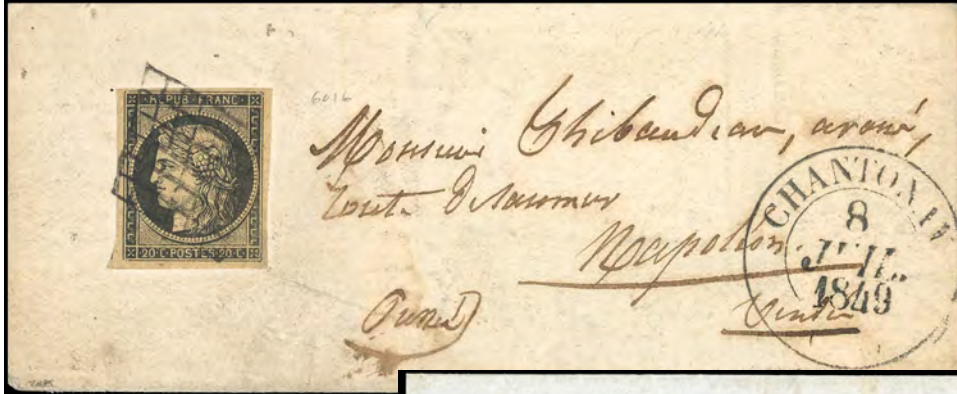 REPUB·FRANC·
20·C·POSTES·20·C
6016
Monsieur Thibaudeau, avoué,
route de saumur
Napoléon.
Vendée
CHANTONAY
8
JUIL.
1849